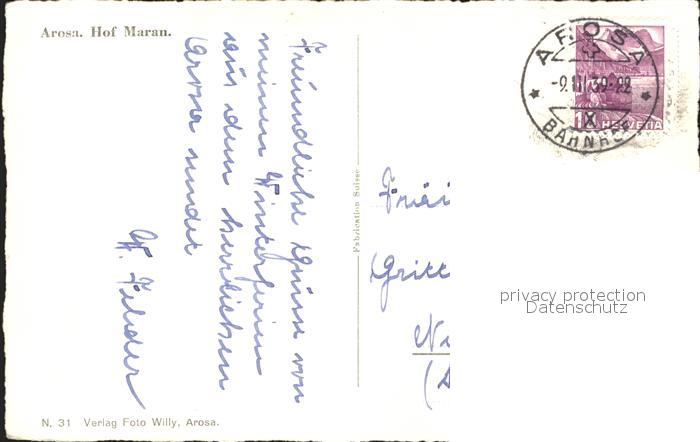 Arosa. Hof Maran.
Freundliche Grüsse von
meinen Winterferien
aus dem herrlichen
Arosa sendet
W. Felder
Fabrication Suisse
AROSA
-9.III.39-22
X
BAHNHOF
HELVETIA
10
privacy protection
Datenschutz
N. 31 Verlag Foto Willy, Arosa.